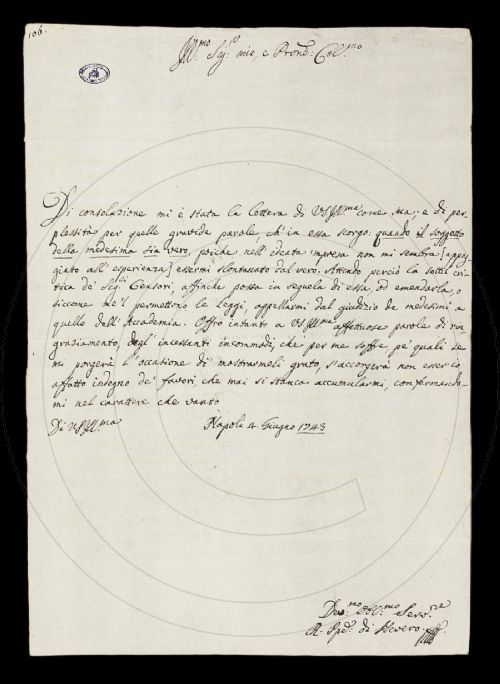 106.
Ill:mo Sig:re mio, e Pron̄e Col:mo
Di consolazione mi è stata la lettera di VSIll:ma come sua; e di per-
plessità per quelle gravide parole ch'in essa scorgo: quando il soggetto
della medesima sia vero, poiche nell'ideata impresa non mi sembra [appog-
giato all'esperienza] essermi slontanato dal vero. Attendo perciò la sottil cri-
tica de' Sig:ri Censori, affinche possa in seguela di essa, od emendarla, o
siccome me'l permettono le leggi, appellarmi dal giudizio de medesimi a
quello dell'Accademia. Offro intanto a VSIll:ma affettuose parole di rin-
graziamento, degl'incessanti incommodi, che per me soffre pe' quali se
mi porgerà l'occasione di mostrarmeli grato, s'accorgerà non esser io
affatto indegno de' favori che mai si stanca accumularmi, confermando-
mi nel carattere che vanto
Di VSIll:ma
Napoli 4. Giugno 1743
Dev:mo Obl:mo Serv:re